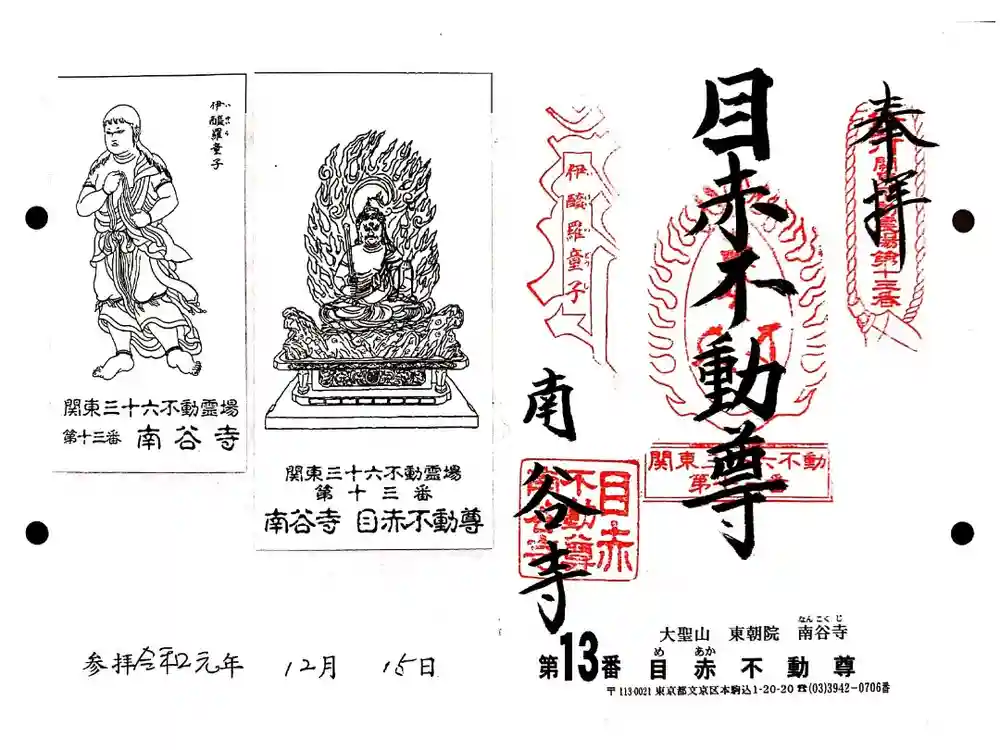 奉拝
目赤不動尊
南谷寺
伊醯羅童子
関東三十六不動
第十三番
目赤
不動尊
南谷寺
伊醯羅童子
関東三十六不動霊場
第十三番 南谷寺
関東三十六不動霊場
第十三番
南谷寺 目赤不動尊
参拝令和元年 12月 15日
大聖山 東朝院 南谷寺
なんこくじ
第13番 目赤不動尊
め あか
〒113-0021 東京都文京区本駒込1-20-20 ☎(03)3942-0706番